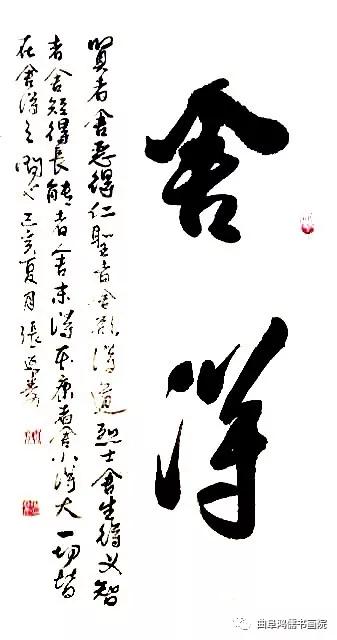 舍得
贤者舍恶得仁聖者舍欲得道烈士舍生得义智
者舍短得長能者舍末得本康者舍小得大一切皆
在舍得之間也己亥夏月張
曲阜鸿儒书画院